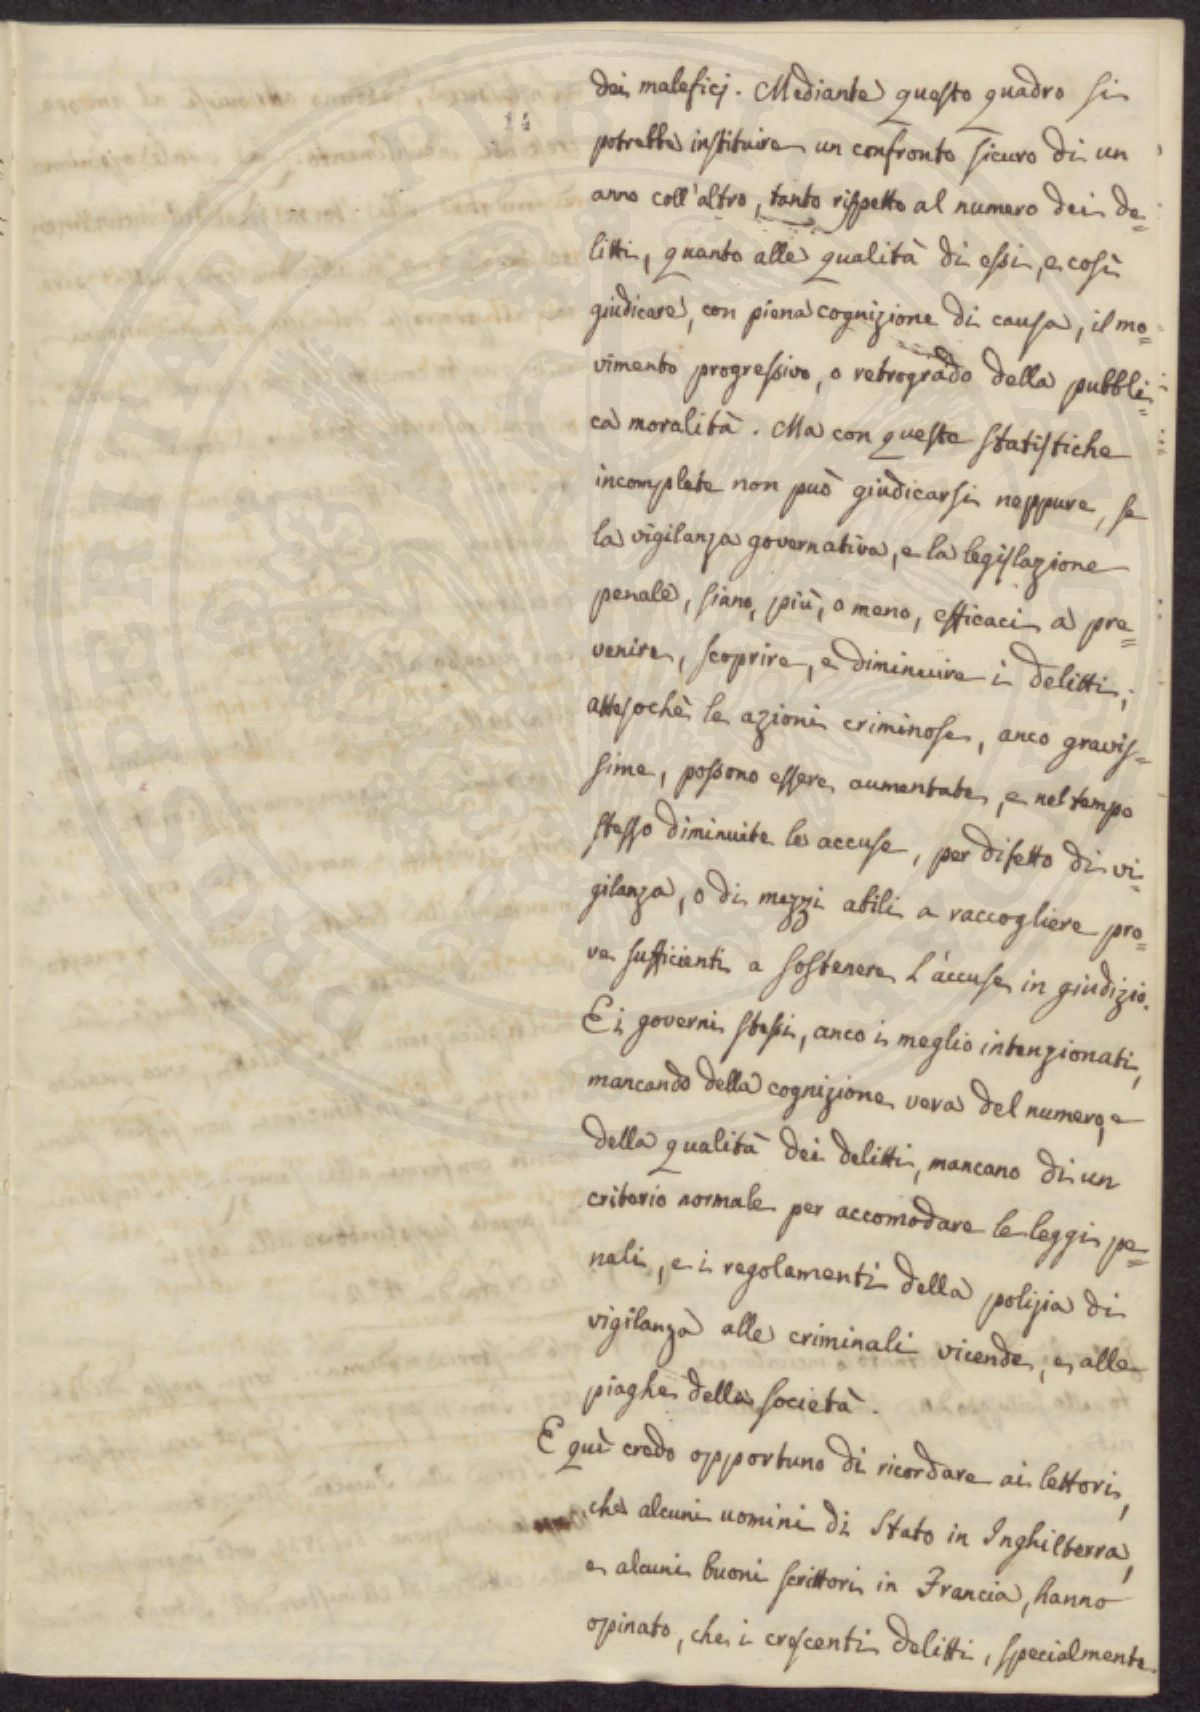 14
dei maleficj. Mediante questo quadro si
potrebbe instituire un confronto sicuro di un
anno coll'altro, tanto rispetto al numero dei de=
litti, quanto alle qualità di essi, e così
giudicare, con piena cognizione di causa, il mo=
vimento progressivo, o retrogrado della pubbli=
ca moralità. Ma con queste statistiche
incomplete non può giudicarsi neppure, se
la vigilanza governativa, e la legislazione
penale, siano, più, o meno, efficaci a pre=
venire, scoprire, e diminuire i delitti;
attesochè le azioni criminose, anco gravis=
sime, possono essere aumentate, e nel tempo
stesso diminuite le accuse, per difetto di vi=
gilanza, o di mezzi abili a raccogliere pro=
ve sufficienti a sostenere l'accuse in giudizio.
E i governi stessi, anco i meglio intenzionati,
mancando della cognizione vera del numero, e
della qualità dei delitti, mancano di un
criterio normale per accomodare le leggi pe=
nali, e i regolamenti della polizia di
vigilanza alle criminali vicende, e alle
piaghe della società.
E quì credo opportuno di ricordare ai lettori,
che alcuni uomini di Stato in Inghilterra,
e alcuni buoni scrittori in Francia, hanno
opinato, che i crescenti delitti, specialmente